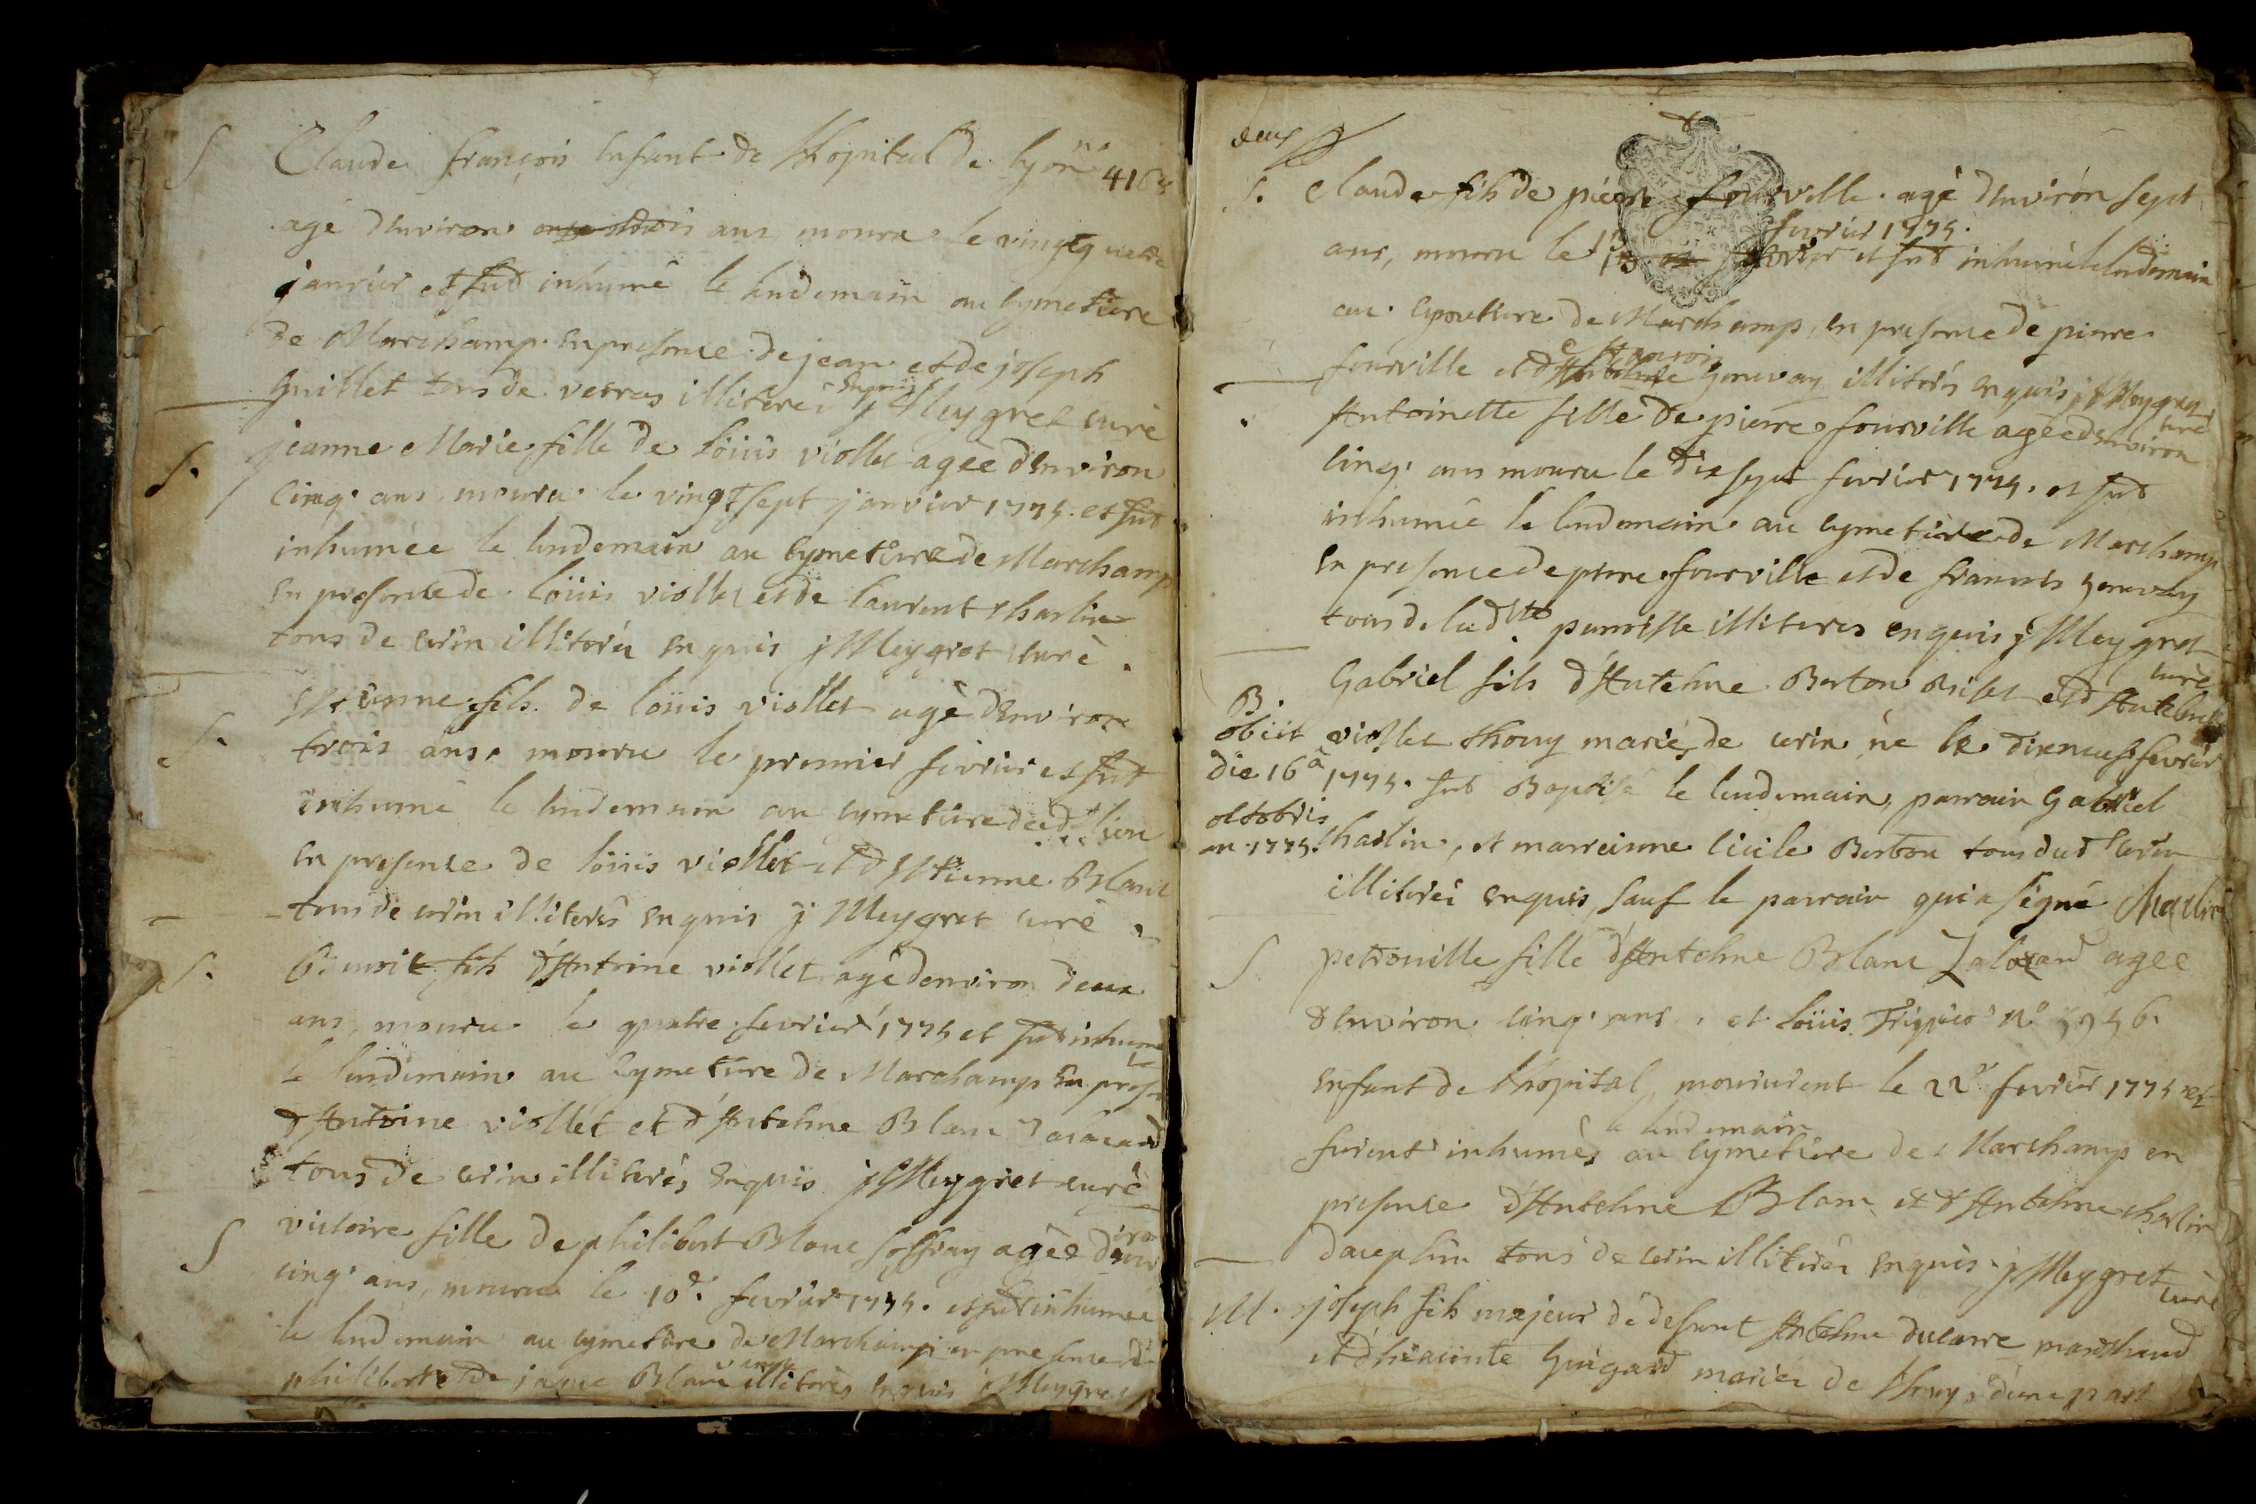 S Claude françois Enfant de l'hopital de lyon n° 416
agé d'Environ ans mouru le vingt quatre
janvier et fut inhumé le lendemain au Cymetiere
de Marchamp En presence de jean et de joseph
Guillet tous de verras illiterés Enquis j Meygret curé
S. jeanne Marie fille de Loüis viollet agée d'Environ
Cinq ans mouru le vingt sept janvier 1775. et fut
inhumée le lendemain au Cymetiere de Marchamp
En presence de Loüis viollet et de laurent charlin
tous de cerin illiterés Enquis j Meygret curé.
S. Estienne fils de loüis viollet agé d'Environ
trois ans mouru le premier fevrier et fut
inhumé le lendemain au cymetiere dud. lieu
En presence de loüis viollet et d'Estienne Blanc
tous de cerin illiterés Enquis j Meygret curé.
S. Benoit fils d'Antoine viollet agé d'environ deux
ans, mouru le quatre fevrier 1775 et fut inhumé
le lendemain au Cymetiere de Marchamp En pres.
d'Antoine viollet et d'Antelme Blanc
tous de cerin illiterés Enquis j Meygret curé
S victoire fille de philibert Blanc agée d'Environ
cinq ans, mouru le 10e. fevrier 1775. et fut inhumée
le lendemain au cymetiere de Marchamp en presence de
philibert et de Blanc illiterés Enquis j Meygret
deux
S. Claude fils de pierre fourville agé d'Environ sept
fevrier 1775.
ans, mouru le et fut inhumé le lendemain
au Cymetiere de Marchamp, en presence de pierre
françois
fourville et de Genevay illiterés Enquis j Meygret
curé
Antoinette fille de pierre fourville agée d'Environ
Cinq ans mouru le dix sept fevrier 1775. et fut
inhumée le lendemain au Cymetiere de Marchamp
En presence de pierre fourville et de francois Genevay
tous de ladte paroisse illiteres enquis j Meygret
curé
B. Gabriel fils d'Antelme Berton et d'Antelmette
obiit viollet thouy mariés de cerin né le dix neuf fevrier
die 16a 1775. fut Baptisé le lendemain, parrain Gabriel
octobris
an 1775. charlin, et marreinne Cicile Berton tous dud Cerin
illiterés Enquis, sauf le parrain qui a signé Charlin
S. petronille fille d'Antelme Blanc agée
d'Environ cinq ans, et Loüis n°
Enfant de l'hopital, moururent le 22e fevrier 1775 et
le lendemain
furent inhumés au Cymetiere de Marchamp en
presence d'Antelme Blanc et d'Antelme charlin
dauphin tous de cerin illiterés Enquis j Meygret
curé
M. joseph fils majeur de defunt Antelme ducarre marchand
et d'hiacinte Guigard mariés de d'une part